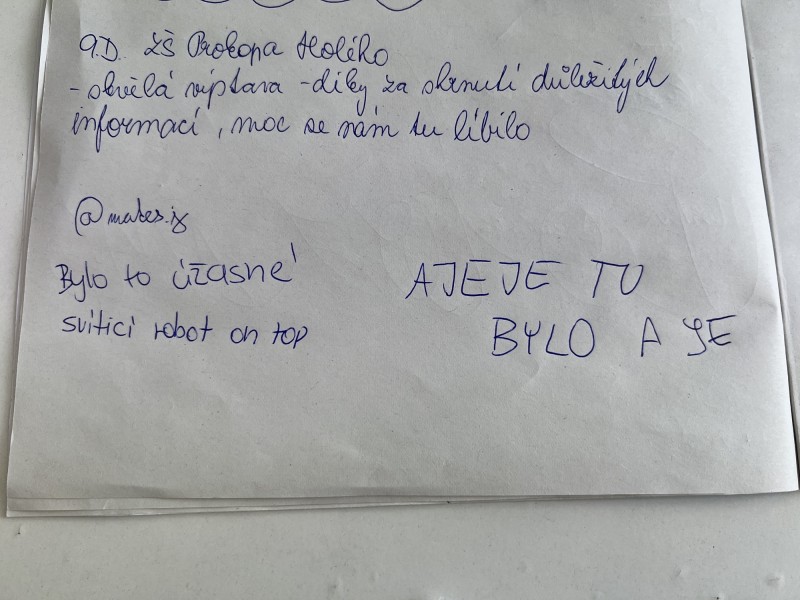 9.D. ZŠ Prokopa Holého
- skvělá výstava - díky za shrnutí důležitých
informací, moc se nám tu líbilo
Bylo to úžasné
svítící robot on top
AJEJE TO
BYLO A JE